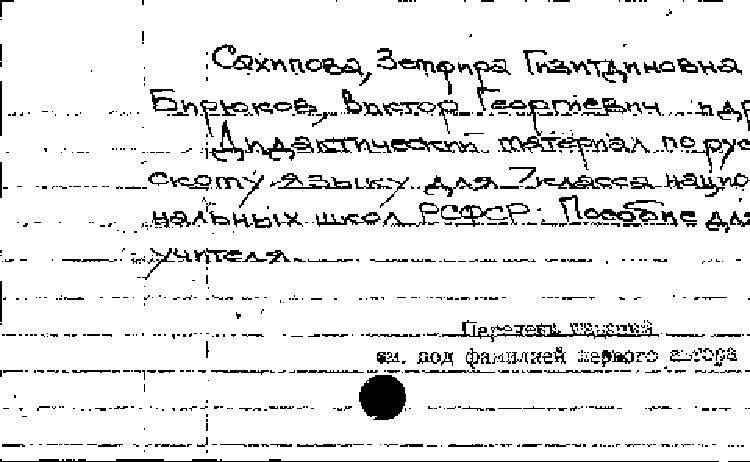 Сахипова, Земфира Гиаитдиновна
Бирюков, Виктор Георгиевич и др
Дидактический материал по рус
скому языку для 7 класса нацио
нальных школ РСФСР: Пособие для
учителя
Перечень изданий
см. под фамилией первого автора